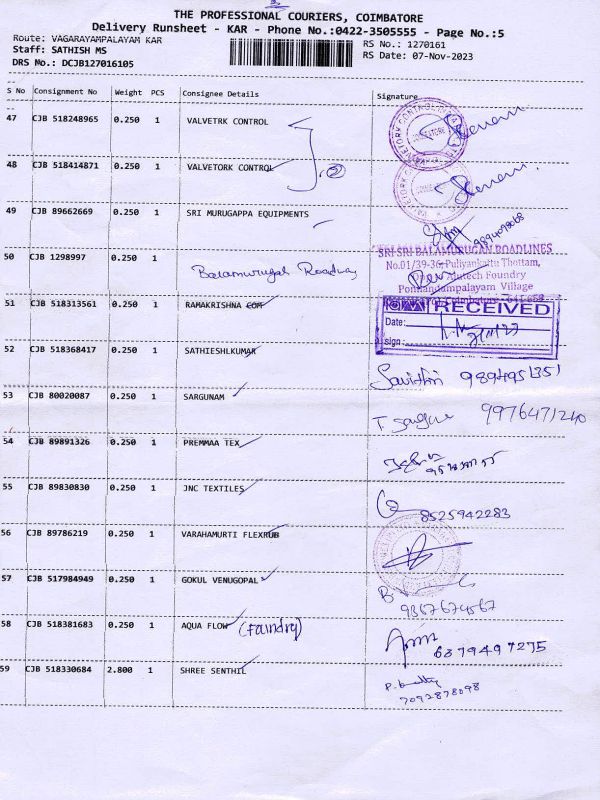 THE PROFESSIONAL COURIERS, COIMBATORE
Delivery Runsheet - KAR - Phone No.:0422-3505555 - Page No.:5
Route: VAGARAYAMPALAYAM KAR
RS No.: 1270161
Staff: SATHISH MS
RS Date: 07-Nov-2023
DRS No.: DCJB127016105
S No Consignment No Weight PCS Consignee Details Signature
47 CJB 518248965 0.250 1 VALVETRK CONTROL
48 CJB 518414871 0.250 1 VALVETORK CONTROL 2
49 CJB 89662669 0.250 1 SRI MURUGAPPA EQUIPMENTS
50 CJB 1298997 0.250 1 Balamurugan Roadway
SRI SRI BALAMURUGAN ROADLINES
No.01/39-36, Puliyankattu Thottam,
Foundry
Village
51 CJB 518313561 0.250 1 RAMAKRISHNA COM
RECEIVED
Date:
sign:
52 CJB 518368417 0.250 1 SATHIESHLKUMAR Savithri 9894951351
53 CJB 80020087 0.250 1 SARGUNAM 9976471240
54 CJB 89891326 0.250 1 PREMMAA TEX
55 CJB 89830830 0.250 1 JNC TEXTILES 8525942283
56 CJB 89786219 0.250 1 VARAHAMURTI FLEXRUB
57 CJB 517984949 0.250 1 GOKUL VENUGOPAL 9357674567
58 CJB 518381683 0.250 1 AQUA FLOW (Foundry) 6379497275
59 CJB 518330684 2.800 1 SHREE SENTHIL 7092878098